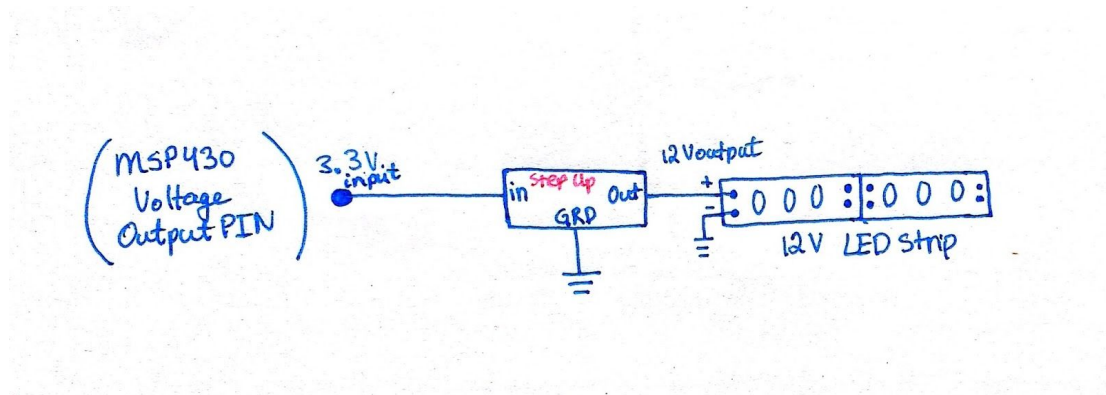 MSP430
Voltage
Output PIN
3.3V
input
in
Step Up
Out
GRD
12 Voutput
+
-
12V LED Strip